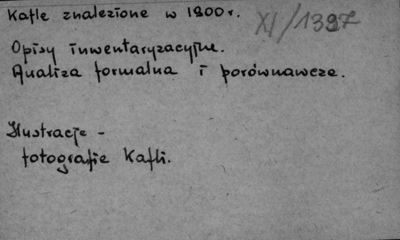 Kafle znalezione w 1900 r. XI/1397
Opisy inwentaryzacyjne.
Analiza formalna i porównawcza.
Ilustracje -
fotografie Kafli.